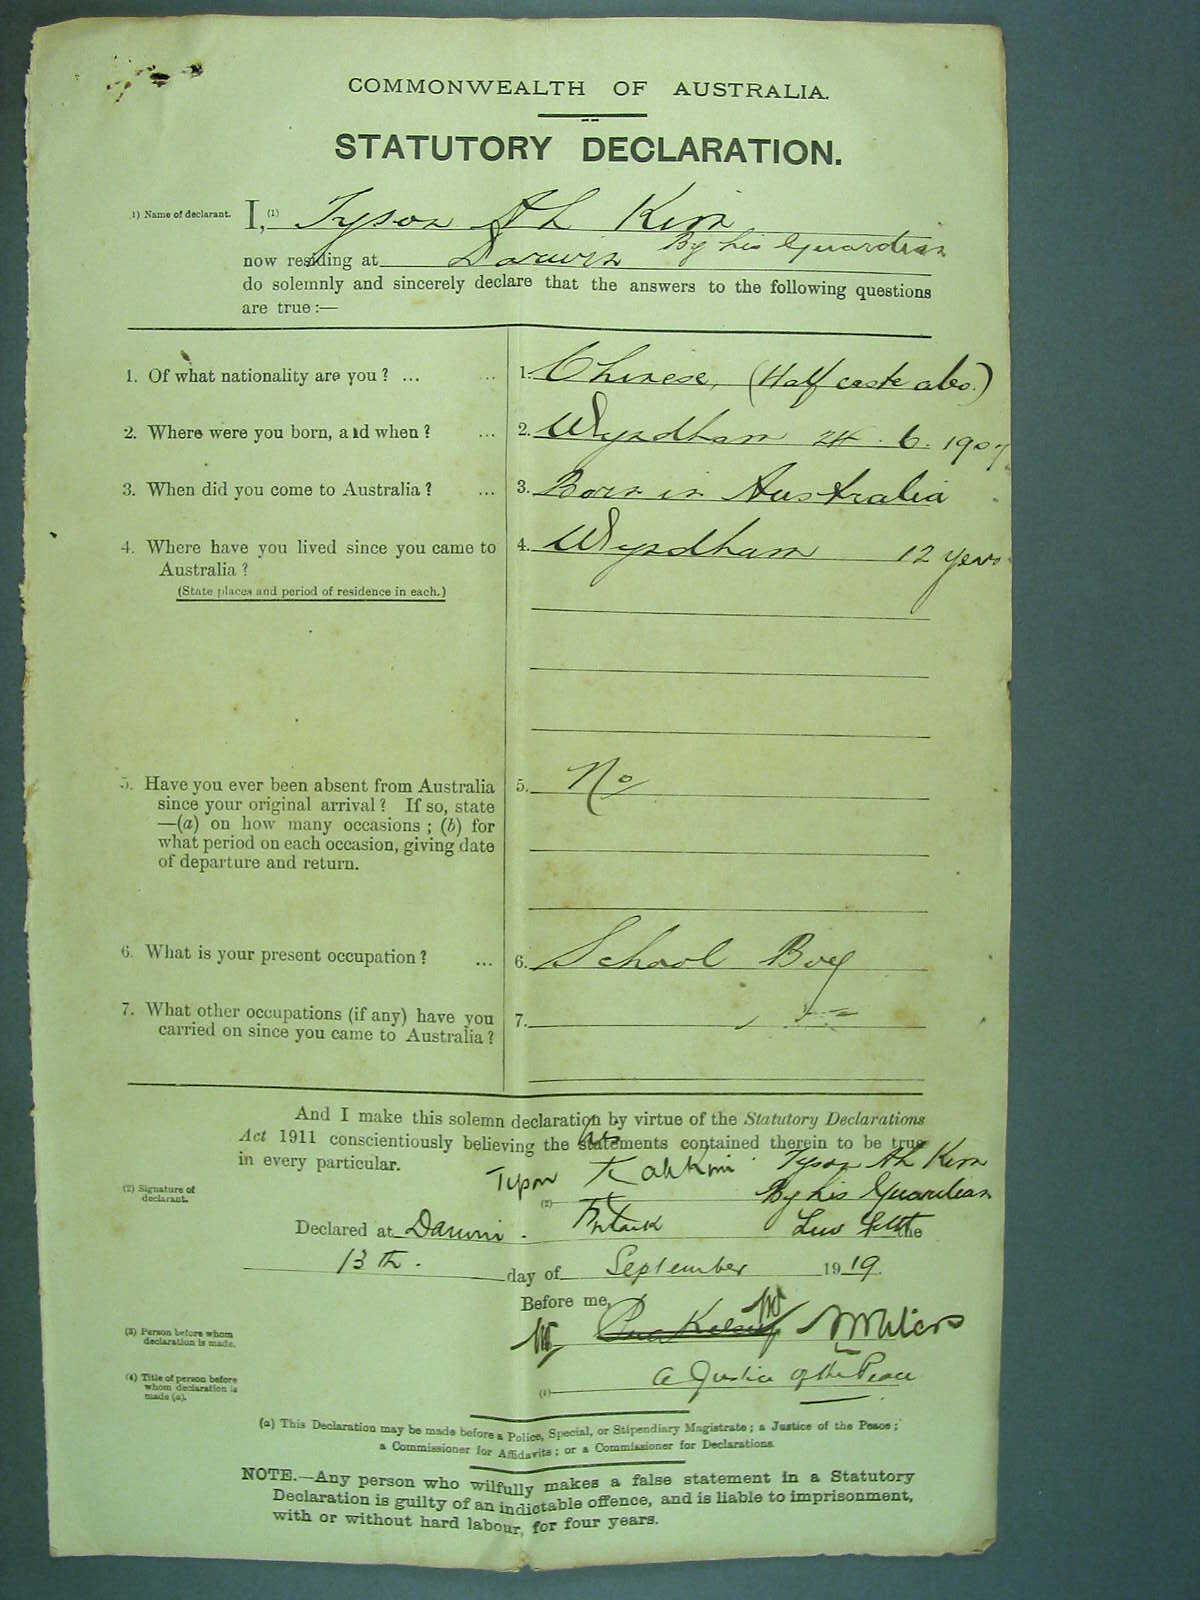 COMMONWEALTH OF AUSTRALIA.
STATUTORY DECLARATION.
1) Name of declarant. I, (1) Tyson Ah Kim
By his Guardian
now residing at Darwin
do solemnly and sincerely declare that the answers to the following questions
are true :—
1. Of what nationality are you ? ... ... 1. Chinese, (Half caste abo.)
2. Where were you born, and when ? ... 2. Wyndham 24. 6. 1907
3. When did you come to Australia ? ... 3. Born in Australia
4. Where have you lived since you came to 4. Wyndham 12 years
Australia ?
(State places and period of residence in each.)
5. Have you ever been absent from Australia 5. No
since your original arrival ? If so, state
—(a) on how many occasions ; (b) for
what period on each occasion, giving date
of departure and return.
6. What is your present occupation ? ... 6. School Boy
7. What other occupations (if any) have you 7.
carried on since you came to Australia ?
And I make this solemn declaration by virtue of the Statutory Declarations
Act 1911 conscientiously believing the statements contained therein to be true
in every particular.
Tyson Ah Kim
(2) Signature of
declarant.
(2) By his Guardian
Declared at Darwin the
13th. day of September 1919.
Before me,
(3) Person before whom
declaration is made.
(4) Title of person before
whom declaration is
made (a).
(4) a Justice of the Peace
(a) This Declaration may be made before a Police, Special, or Stipendiary Magistrate ; a Justice of the Peace ;
a Commissioner for Affidavits ; or a Commissioner for Declarations
NOTE.—Any person who wilfully makes a false statement in a Statutory
Declaration is guilty of an indictable offence, and is liable to imprisonment,
with or without hard labour, for four years.